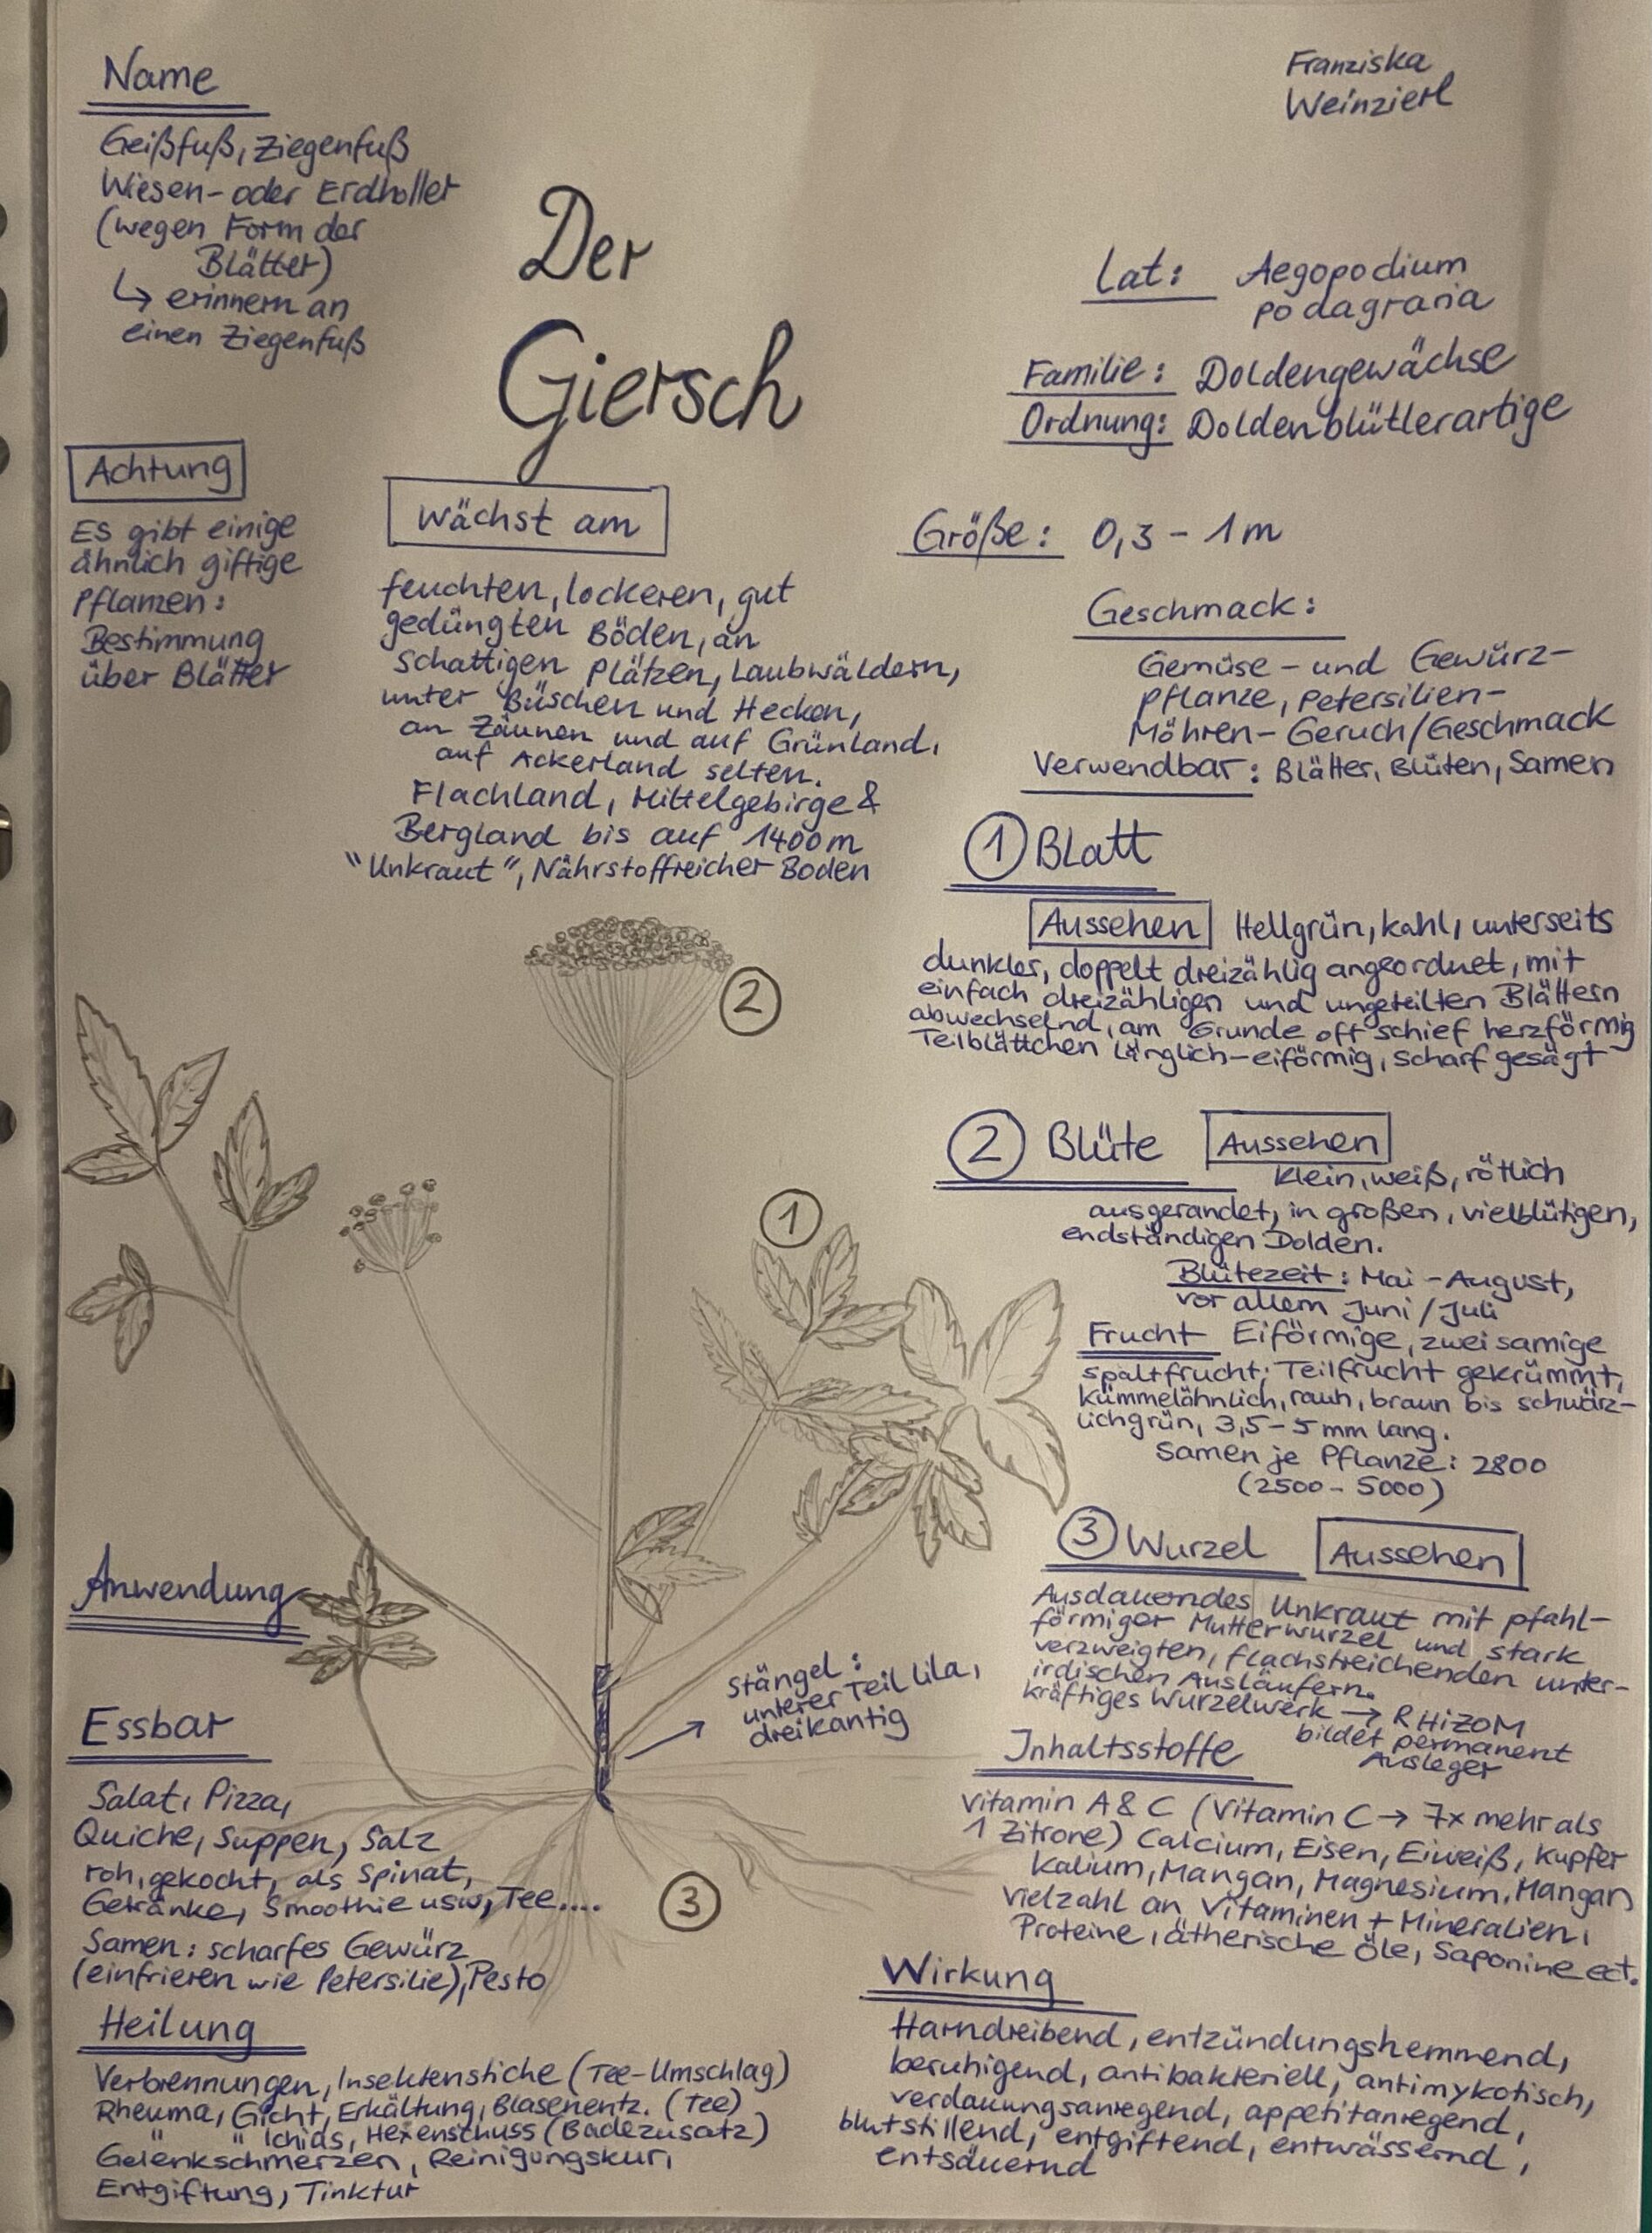 Name
Geißfuß, Ziegenfuß
Wiesen- oder Erdholler
(wegen Form der
Blätter)
↳ erinnern an
einen Ziegenfuß
Franziska
Weinzierl
Der
Giersch
Lat: Aegopodium
podagraria
Familie: Doldengewächse
Ordnung: Doldenblütlerartige
Achtung
ES gibt einige
ähnlich giftige
Pflanzen:
Bestimmung
über Blätter
Wächst am
feuchten, lockeren, gut
gedüngten Böden, an
schattigen Plätzen, Laubwäldern,
unter Büschen und Hecken,
an Zäunen und auf Grünland,
auf Ackerland selten.
Flachland, Mittelgebirge &
Bergland bis auf 1400m
"Unkraut", Nährstoffreicher Boden
Größe: 0,3 - 1m
Geschmack:
Gemüse - und Gewürz-
pflanze, Petersilien-
Möhren- Geruch/Geschmack
Verwendbar: Blätter, Blüten, Samen
① Blatt
Aussehen Hellgrün, kahl, unterseits
dunkler, doppelt dreizählig angeordnet, mit
einfach dreizähligen und ungeteilten Blättern
abwechselnd, am Grunde oft schief herzförmig
Teilblättchen länglich-eiförmig, scharf gesägt
② Blüte Aussehen
klein, weiß, rötlich
ausgerandet, in großen, vielblütigen,
endständigen Dolden.
Blütezeit: Mai - August,
vor allem Juni / Juli
Frucht Eiförmige, zweisamige
spaltfrucht; Teilfrucht gekrümmt,
kümmelähnlich, rauh, braun bis schwärz-
lichgrün, 3,5 - 5 mm lang.
Samen je Pflanze: 2800
(2500 - 5000)
③ Wurzel Aussehen
Ausdauerndes Unkraut mit pfahl-
förmiger Mutterwurzel und stark
verzweigten, flachstreichenden unter-
irdischen Ausläufern.
kräftiges Wurzelwerk → RHIZOM
bildet permanent
Ausleger
Inhaltsstoffe
Vitamin A & C (Vitamin C → 7x mehr als
1 Zitrone) Calcium, Eisen, Eiweiß, Kupfer
Kalium, Mangan, Magnesium, Mangan
Vielzahl an Vitaminen + Mineralien,
Proteine, ätherische Öle, Saponine ect.
Wirkung
Harndreibend, entzündungshemmend,
beruhigend, antibakteriell, antimykotisch,
verdauungsanregend, appetitanregend,
blutstillend, entgiftend, entwässernd,
entsäuernd
②
①
Stängel:
unterer Teil lila,
dreikantig
③
Anwendung
Essbar
Salat, Pizza,
Quiche, Suppen, Salz
roh, gekocht, als Spinat,
Getränke, Smoothie usw, Tee....
Samen: scharfes Gewürz
(einfrieren wie Petersilie), Pesto
Heilung
Verbrennungen, Insektenstiche (Tee-Umschlag)
Rheuma, Gicht, Erkältung, Blasenentz. (Tee)
" " Ichias, Hexenschuss (Badezusatz)
Gelenkschmerzen, Reinigungskur,
Entgiftung, Tinktur